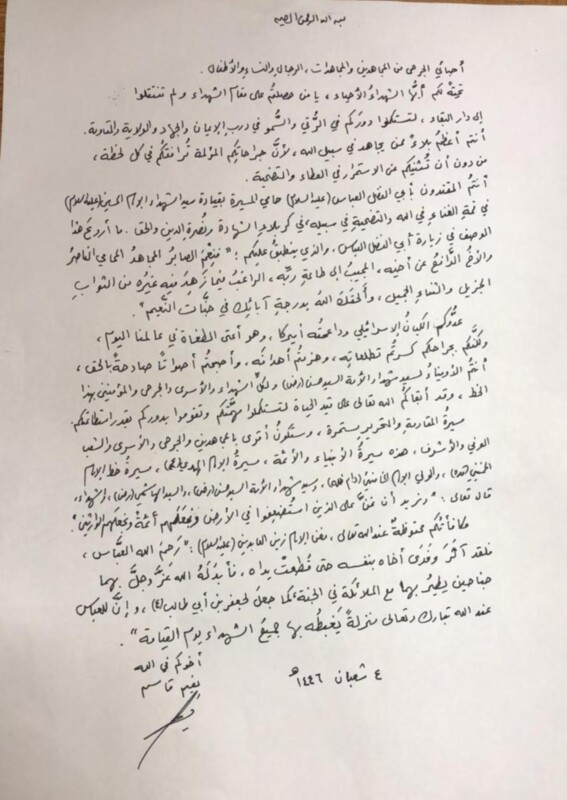 بسم الله الرحمن الرحيم
أحبائي الجرحى من المجاهدين والمجاهدات، الرجال والنساء والأطفال.
تحيةٌ لكم أيُّها الشهداءُ الأحياء، يا من حصلتم على مقام الشهداء ولم تنتقلوا
إلى دار البقاء، لتستكملوا دورَكم في الرُّقي والسُّمو في درب الإيمان والجهاد والولاية والمقاومة.
أنتم أعظمُ بلاءً ممن يجاهد في سبيل الله، لأنَّ جراحاتِكم المؤلمة تُرافقكم في كل لحظة،
من دون أن تُثنيكم عن الاستمرار في العطاء والتضحية.
أنتمُ المقتدون بأبي الفضل العباس (عليه السلام) حامي المسيرة بقيادة سيد الشهداء الإمام الحسين (عليه السلام)
في قمة الفناءِ في الله والتضحيةِ في سبيله، في كربلاءِ الشهادة ونُصرة الدين والحق. ما أروعَ هذا
الوصف في زيارة أبي الفضل العباس، والذي ينطبقُ عليكم: "فنِعْمَ الصابرُ المجاهدُ المحامي الناصرُ
والأخُ الدَّافعُ عن أخيه، المجيبُ إلى طاعةِ ربِّه، الراغبُ فيما زَهِدَ فيه غيرُه من الثوابِ
الجزيل والثناءِ الجميل، وألحقَكَ اللهُ بدرجةِ آبائِكَ في جنَّات النَّعيم".
عدُوُّكم الكيانُ الإسرائيلي وداعمتُه أميركا، وهو أعتى الطغاة في عالمنا اليوم،
ولكنَّكم بجراحكم كسرتُم تطلعاتِه، وهزمتُم أهدافَه. وأصبحتُم أصواتاً صادحةً بالحق،
أنتُم الأوفياءُ لسيدِ شهداءِ الأمة السيد حسن (رض)، ولكلِّ الشهداءِ والأسرى والجرحى والمؤمنين بهذا
الخط، وقد أبقاكُم الله تعالى على قيدِ الحياة لتستكملوا مهمَّتَكم وتقوموا بدوركم بقدر استطاعتكم.
مسيرةُ المقاومةِ والتحرير مستمرة، وستكونُ أقوى بالمجاهدين والجرحى والأسرى والشعب
الوفي والأشرف، هذه مسيرةُ الأنبياء والأئمة، مسيرةُ الإمام المهدي (عج)، مسيرةُ خط الإمام
الخميني (قده)، والولي الإمام الخامنئي (دام ظله)، وسيد شهداء الأمة السيد حسن (رض)، والسيد الهاشمي (رض)، والشهداء،
قال تعالى: "ونريد أن نمنَّ على الذين استُضعِفوا في الأرض ونجعلَهم أئمةً ونجعلَهم الوارثين".
مكانأتُكم محفوظةٌ عند الله تعالى، فعن الإمام زين العابدين (عليه السلام): "رَحِمَ الله العبَّاس،
فلقد آثرَ وفَدَى أخاه بنفسه حتى قُطِعتْ يداه، فأبدَلَهُ الله عزَّ وجلَّ بهما
جناحين يطيرُ بهما مع الملائكة في الجنة، كما جعلَ لجعفر بن أبي طالب (ع)، وإنَّ للعباس
عند الله تبارك وتعالى منزلةً يَغبِطُه بها جميعُ الشهداء يوم القيامة".
أخوكم في الله
نعيم قاسم
٤ شعبان ١٤٤٦هـ